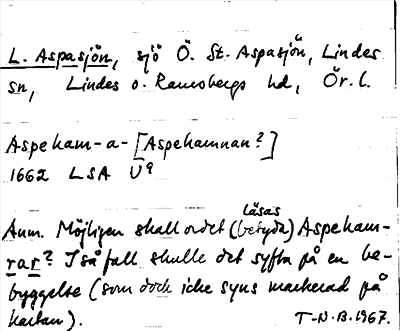 L. Aspasjön, sjö Ö. St. Aspasjön, Lindes
sn, Lindes o. Ramsbergs hd, Ör. l.
Aspeham-a- [Aspehamnan?]
1662 LSA U9
Anm. Möjligen skall ordet (betyda) läsas Aspeham-
rar? I så fall skulle det syfta på en be-
byggelse (som dock icke syns markerad på
kartan). T-N.B. 1967.